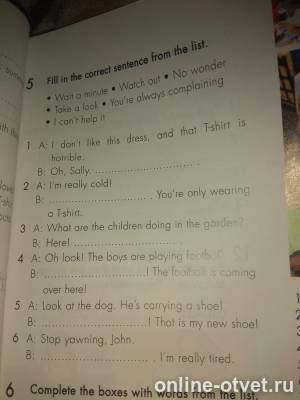 5 Fill in the correct sentence from the list.
• Wait a minute • Watch out • No wonder
• Take a look • You're always complaining
• I can't help it
1 A: I don't like this dress, and that T-shirt is
horrible.
B: Oh, Sally, ..............................
2 A: I'm really cold!
B: .............................. . You're only wearing
a T-shirt.
3 A: What are the children doing in the garden?
B: Here! ..............................
4 A: Oh look! The boys are playing football.
B: ..............................! The football is coming
over here!
5 A: Look at the dog. He's carrying a shoe!
B: ..............................! That is my new shoe!
6 A: Stop yawning, John.
B: .............................. . I'm really tired.
6 Complete the boxes with words from the list.
online-otvet.ru